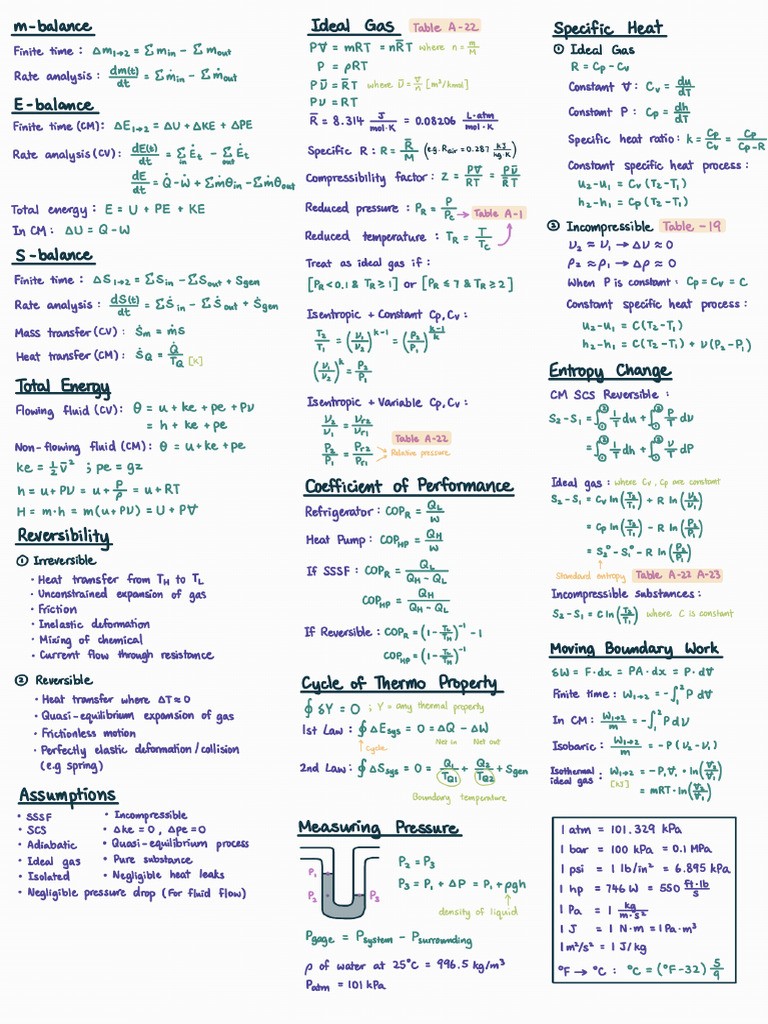 m-balance
Finite time: Δm₁→₂ = Σm_in − Σm_out
Rate analysis: dm(t)/dt = Σṁ_in − Σṁ_out
E-balance
Finite time (CM): ΔE₁→₂ = ΔU + ΔKE + ΔPE
Rate analysis (CV): dE(t)/dt = Σ_in Ė_t − Σ_out Ė_t
dE/dt = Q̇ − Ẇ + Σṁθ_in − Σṁθ_out
Total energy: E = U + PE + KE
In CM: ΔU = Q − W
S-balance
Finite time: ΔS₁→₂ = ΣS_in − ΣS_out + S_gen
Rate analysis: dS(t)/dt = ΣṠ_in − ΣṠ_out + Ṡ_gen
Mass transfer (CV): Ṡ_m = ṁs
Heat transfer (CM): Ṡ_Q = Q̇/T_Q [K]
Total Energy
Flowing fluid (CV): θ = u + ke + pe + Pν
= h + ke + pe
Non-flowing fluid (CM): θ = u + ke + pe
ke = ½ v̄² ; pe = gz
h = u + Pν = u + P/ρ = u + RT
H = m·h = m(u + Pν) = U + PV
Reversibility
① Irreversible
· Heat transfer from T_H to T_L
· Unconstrained expansion of gas
· Friction
· Inelastic deformation
· Mixing of chemical
· Current flow through resistance
② Reversible
· Heat transfer where ΔT ≈ 0
· Quasi-equilibrium expansion of gas
· Frictionless motion
· Perfectly elastic deformation/collision
(e.g spring)
Assumptions
· SSSF
· SCS
· Adiabatic
· Ideal gas
· Isolated
· Incompressible
· Δke = 0, Δpe = 0
· Quasi-equilibrium process
· Pure substance
· Negligible heat leaks
· Negligible pressure drop (For fluid flow)
Ideal Gas Table A-22
PV = mRT = nR̄T where n = m/M
P = ρRT
Pν̄ = R̄T where ν̄ = V/n [m³/kmol]
Pν = RT
R̄ = 8.314 J/mol·K = 0.08206 L·atm/mol·K
Specific R: R = R̄/M (e.g. R_air = 0.287 kJ/kg·K)
Compressibility factor: Z = PV/RT = Pν̄/R̄T
Reduced pressure: P_R = P/P_C → Table A-1
Reduced temperature: T_R = T/T_C
Treat as ideal gas if:
[P_R < 0.1 & T_R ≥ 1] or [P_R ≤ 7 & T_R ≥ 2]
Isentropic + Constant Cp, Cv:
T₂/T₁ = (ν₁/ν₂)^(k−1) = (P₂/P₁)^((k−1)/k)
(ν₁/ν₂)^k = P₂/P₁
Isentropic + Variable Cp, Cv:
ν₂/ν₁ = ν_r2/ν_r1
Table A-22
P₂/P₁ = P_r2/P_r1 Relative pressure
Coefficient of Performance
Refrigerator: COP_R = Q_L/W
Heat Pump: COP_HP = Q_H/W
If SSSF: COP_R = Q_L/(Q_H − Q_L)
COP_HP = Q_H/(Q_H − Q_L)
If Reversible: COP_R = (1 − T_L/T_H)⁻¹ − 1
COP_HP = (1 − T_L/T_H)⁻¹
Cycle of Thermo Property
∮ δY = 0 ; Y = any thermal property
1st Law: ∮ ΔE_sys = 0 = ΔQ − ΔW
Cycle Net in Net out
2nd Law: ∮ ΔS_sys = 0 = Q₁/T_Q1 + Q₂/T_Q2 + S_gen
Boundary temperature
Measuring Pressure
P₁
P₂ P₃
P₂ = P₃
P₃ = P₁ + ΔP = P₁ + ρgh
density of liquid
P_gage = P_system − P_surrounding
ρ of water at 25°C = 996.5 kg/m³
P_atm = 101 kPa
Specific Heat
① Ideal Gas
R = Cp − Cv
Constant V: Cv = du/dT
Constant P: Cp = dh/dT
Specific heat ratio: k = Cp/Cv = Cp/(Cp−R)
Constant specific heat process:
u₂−u₁ = Cv(T₂−T₁)
h₂−h₁ = Cp(T₂−T₁)
② Incompressible Table -19
ν₂ ≈ ν₁ → Δν ≈ 0
ρ₂ ≈ ρ₁ → Δρ ≈ 0
When P is constant: Cp = Cv = C
Constant specific heat process:
u₂−u₁ = C(T₂−T₁)
h₂−h₁ = C(T₂−T₁) + ν(P₂−P₁)
Entropy Change
CM SCS Reversible:
S₂−S₁ = ∫①② 1/T du + ∫①② P/T dν
= ∫①② 1/T dh + ∫①② ν/T dP
Ideal gas: where Cv, Cp are constant
S₂−S₁ = Cv ln(T₂/T₁) + R ln(ν₂/ν₁)
= Cp ln(T₂/T₁) − R ln(P₂/P₁)
= S₂° − S₁° − R ln(P₂/P₁)
Standard entropy Table A-22 A-23
Incompressible substances:
S₂−S₁ = C ln(T₂/T₁) where C is constant
Moving Boundary Work
δW = F·dx = PA·dx = P·dV
Finite time: W₁→₂ = −∫₁² P dV
In CM: W₁→₂/m = −∫₁² P dν
Isobaric: W₁→₂/m = −P(ν₂−ν₁)
Isothermal ideal gas: W₁→₂ = −P₁V₁·ln(V₂/V₁)
[kJ] = mRT·ln(V₂/V₁)
1 atm = 101.329 kPa
1 bar = 100 kPa = 0.1 MPa
1 psi = 1 lb/in² = 6.895 kPa
1 hp = 746 W = 550 ft·lb/s
1 Pa = 1 kg/m·s²
1 J = 1 N·m = 1 Pa·m³
1 m²/s² = 1 J/kg
°F → °C: °C = (°F−32) 5/9